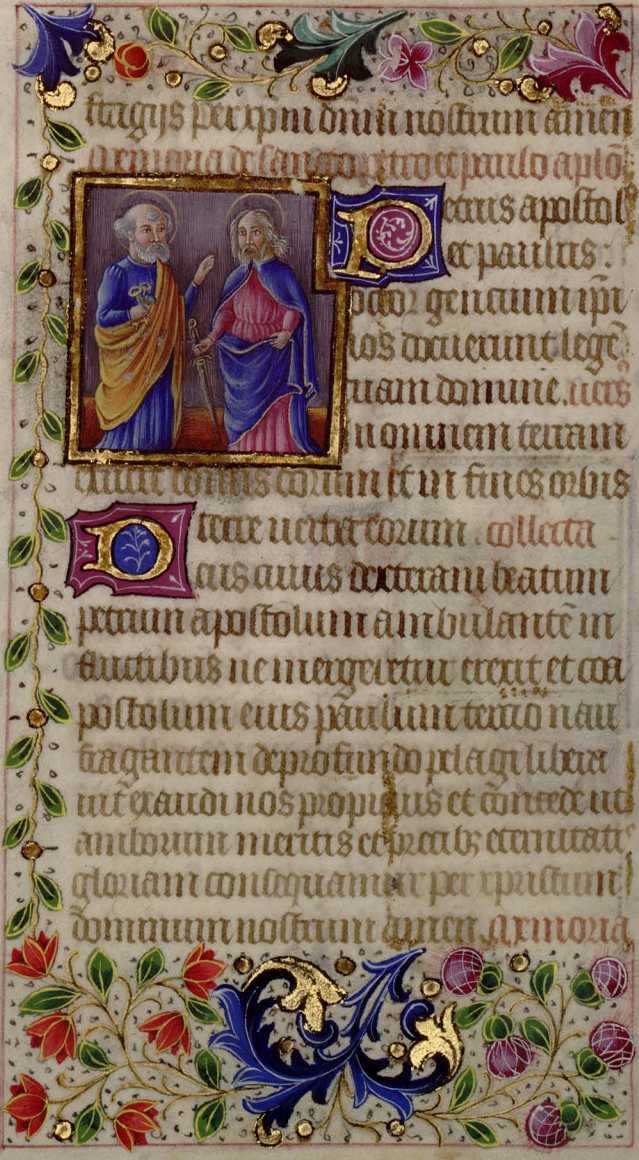 fragijs per xpm dnm nostrum amen
Memoria de sancto petro et paulo aplo
Petrus apostol
et paulus
doctor gencium ipi
nos docuerunt lege
tuam domine. uers
In omnem terram
exiuit sonus eorum Et in fines orbis
terre uerba eorum. collecta
Deus cuius dextera beatum
petrum apostolum ambulante in
fluctibus ne mergeretur erexit et coa
postolum eius paulum tercio nau
fragantem de profundo pelagi libera
uit exaudi nos propicius et concede ut
amborum meritis et precibz eternitatis
gloriam consequamur per xpristum
dominum nostrum amen. Memoria